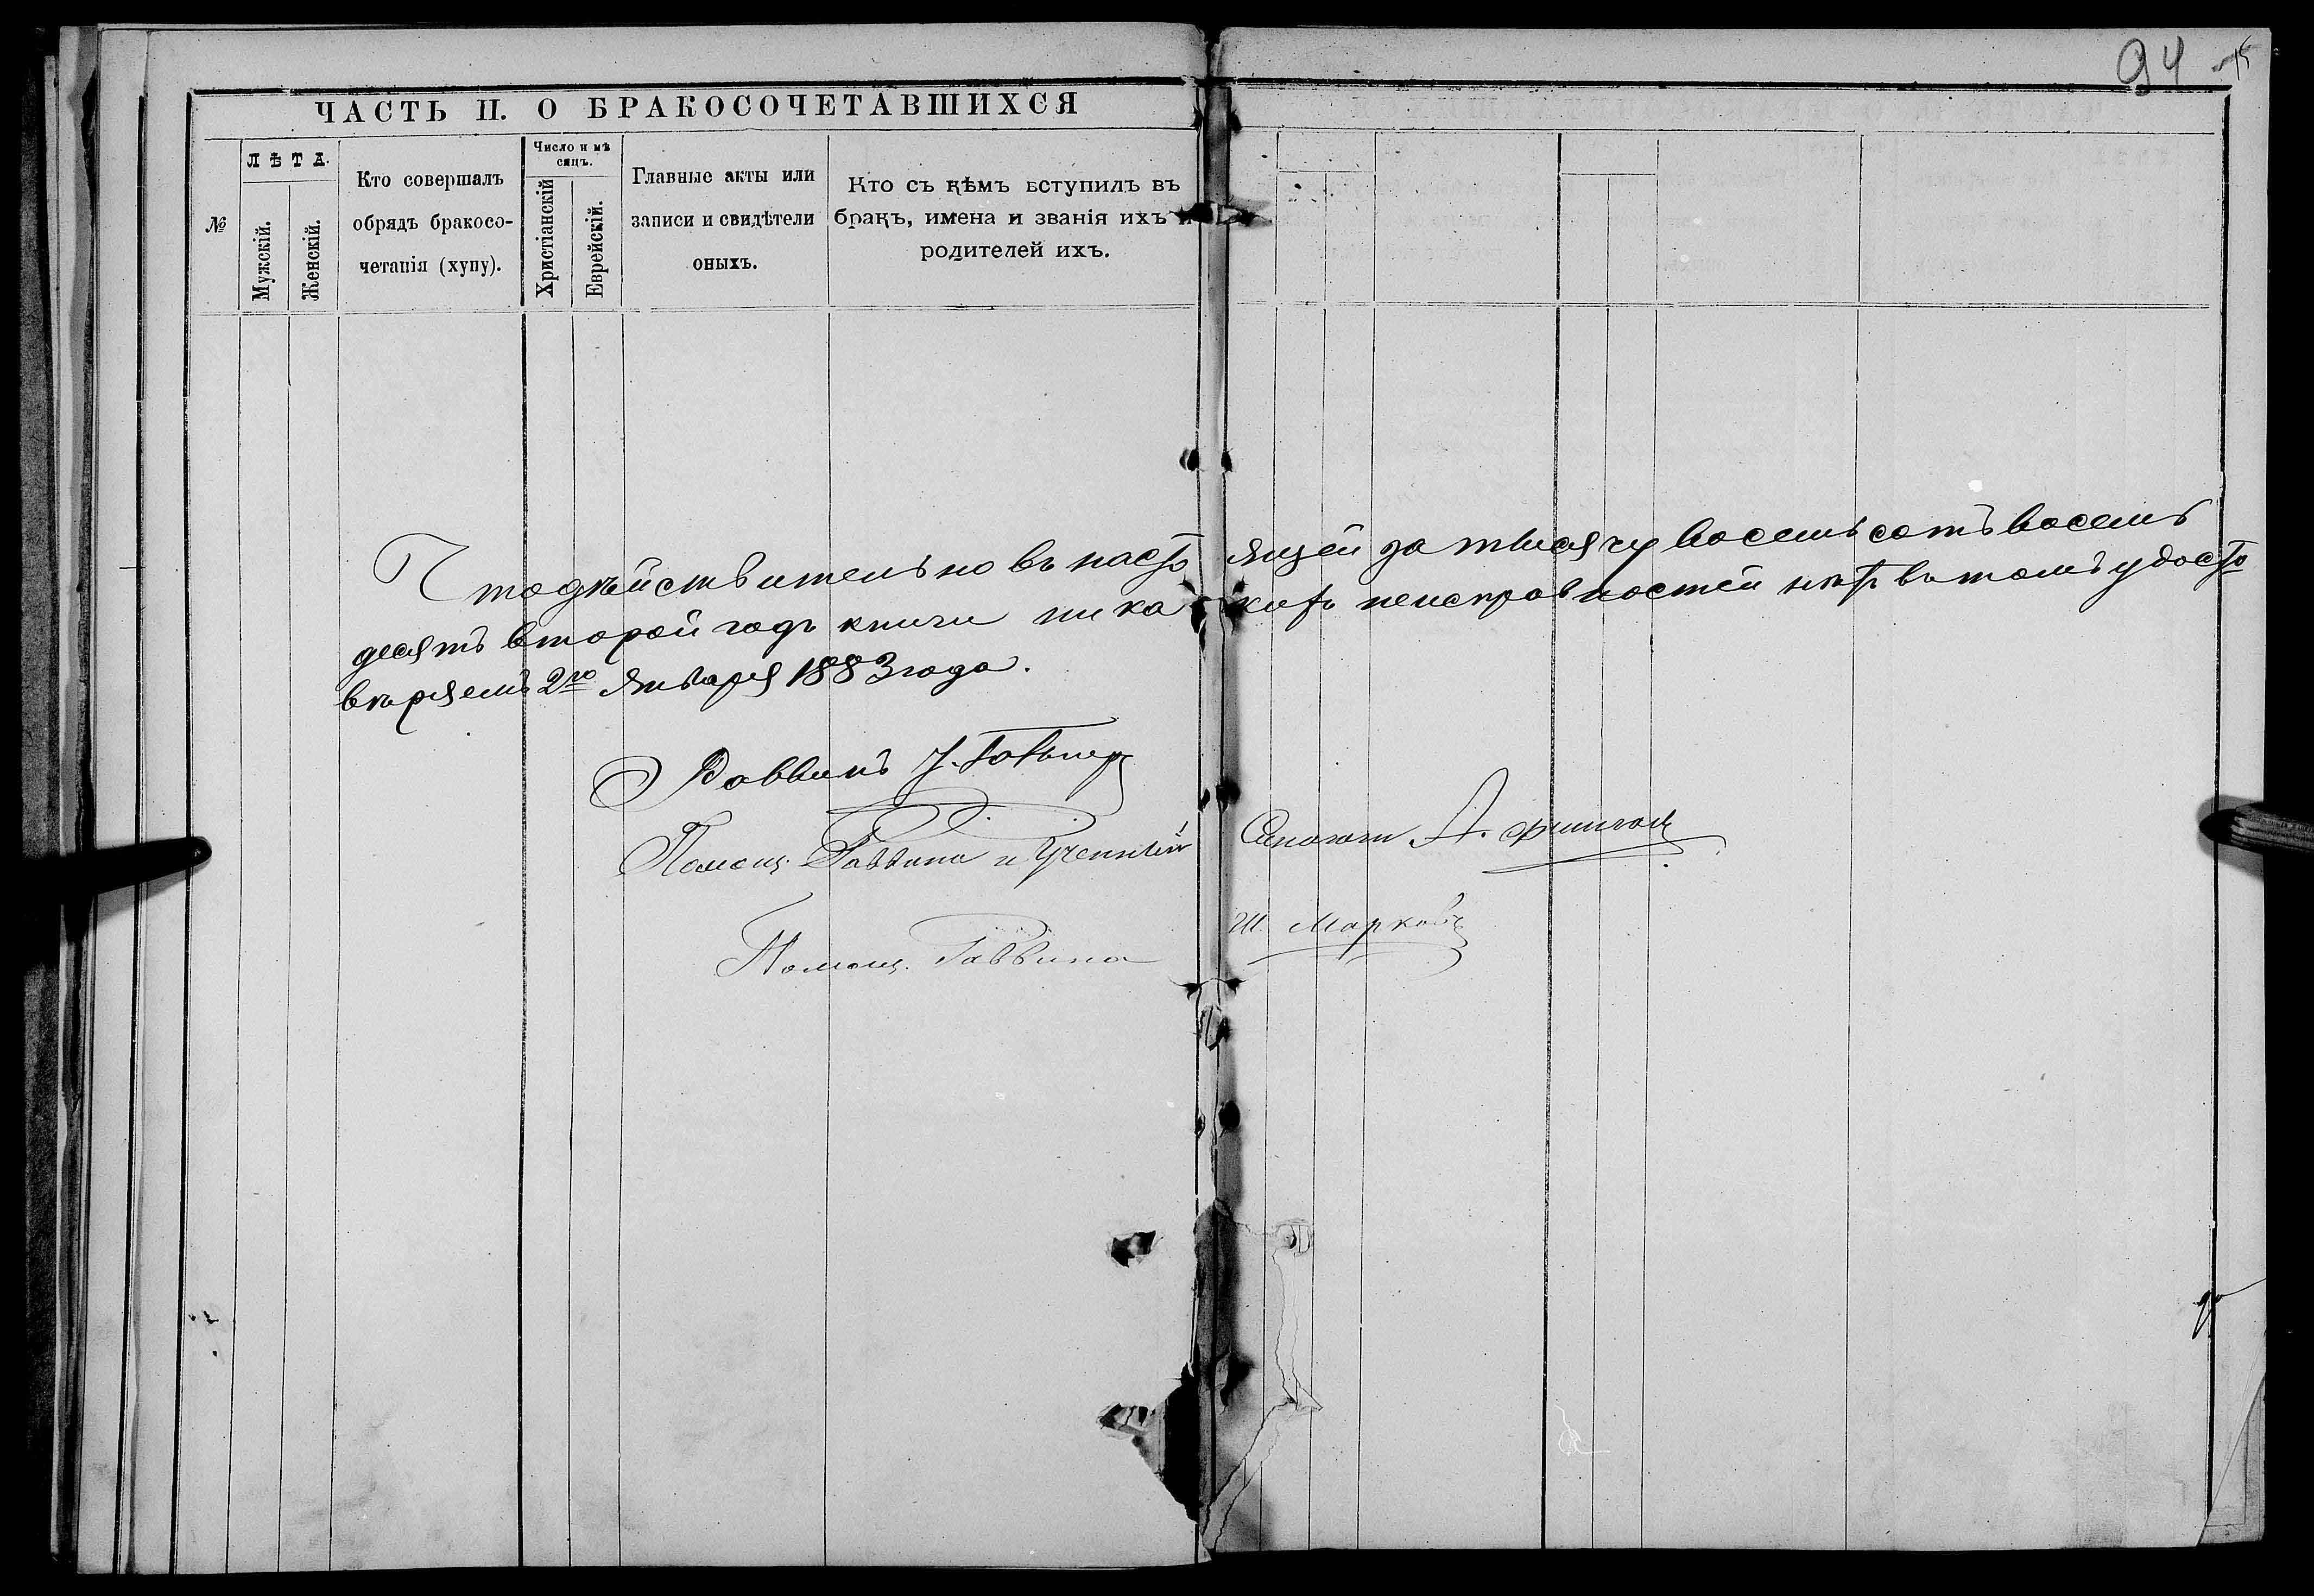 94
ЧАСТЬ II. О БРАКОСОЧЕТАВШИХСЯ
№
ЛѢТА.
Мужскій.
Женскій.
Кто совершалъ
обрядъ бракосо-
четанія (хупу).
Число и мѣ
сяцъ.
Христіанскій
Еврейскій.
Главные акты или
записи и свидѣтели
оныхъ.
Кто съ кѣмъ вступилъ въ
бракъ, имена и званія ихъ и
родителей ихъ.
Что дѣйствительно въ насто ящей за тысячу восемьсотъ восемь
десятъ второй годъ книги ника кихъ неисправностей нѣтъ въ томъ удосто
вѣряемъ 2го Января 1883 года.
Раввинъ
Помощ. Раввина и Ученый А.
Помощ. Раввина Ш. Марковъ